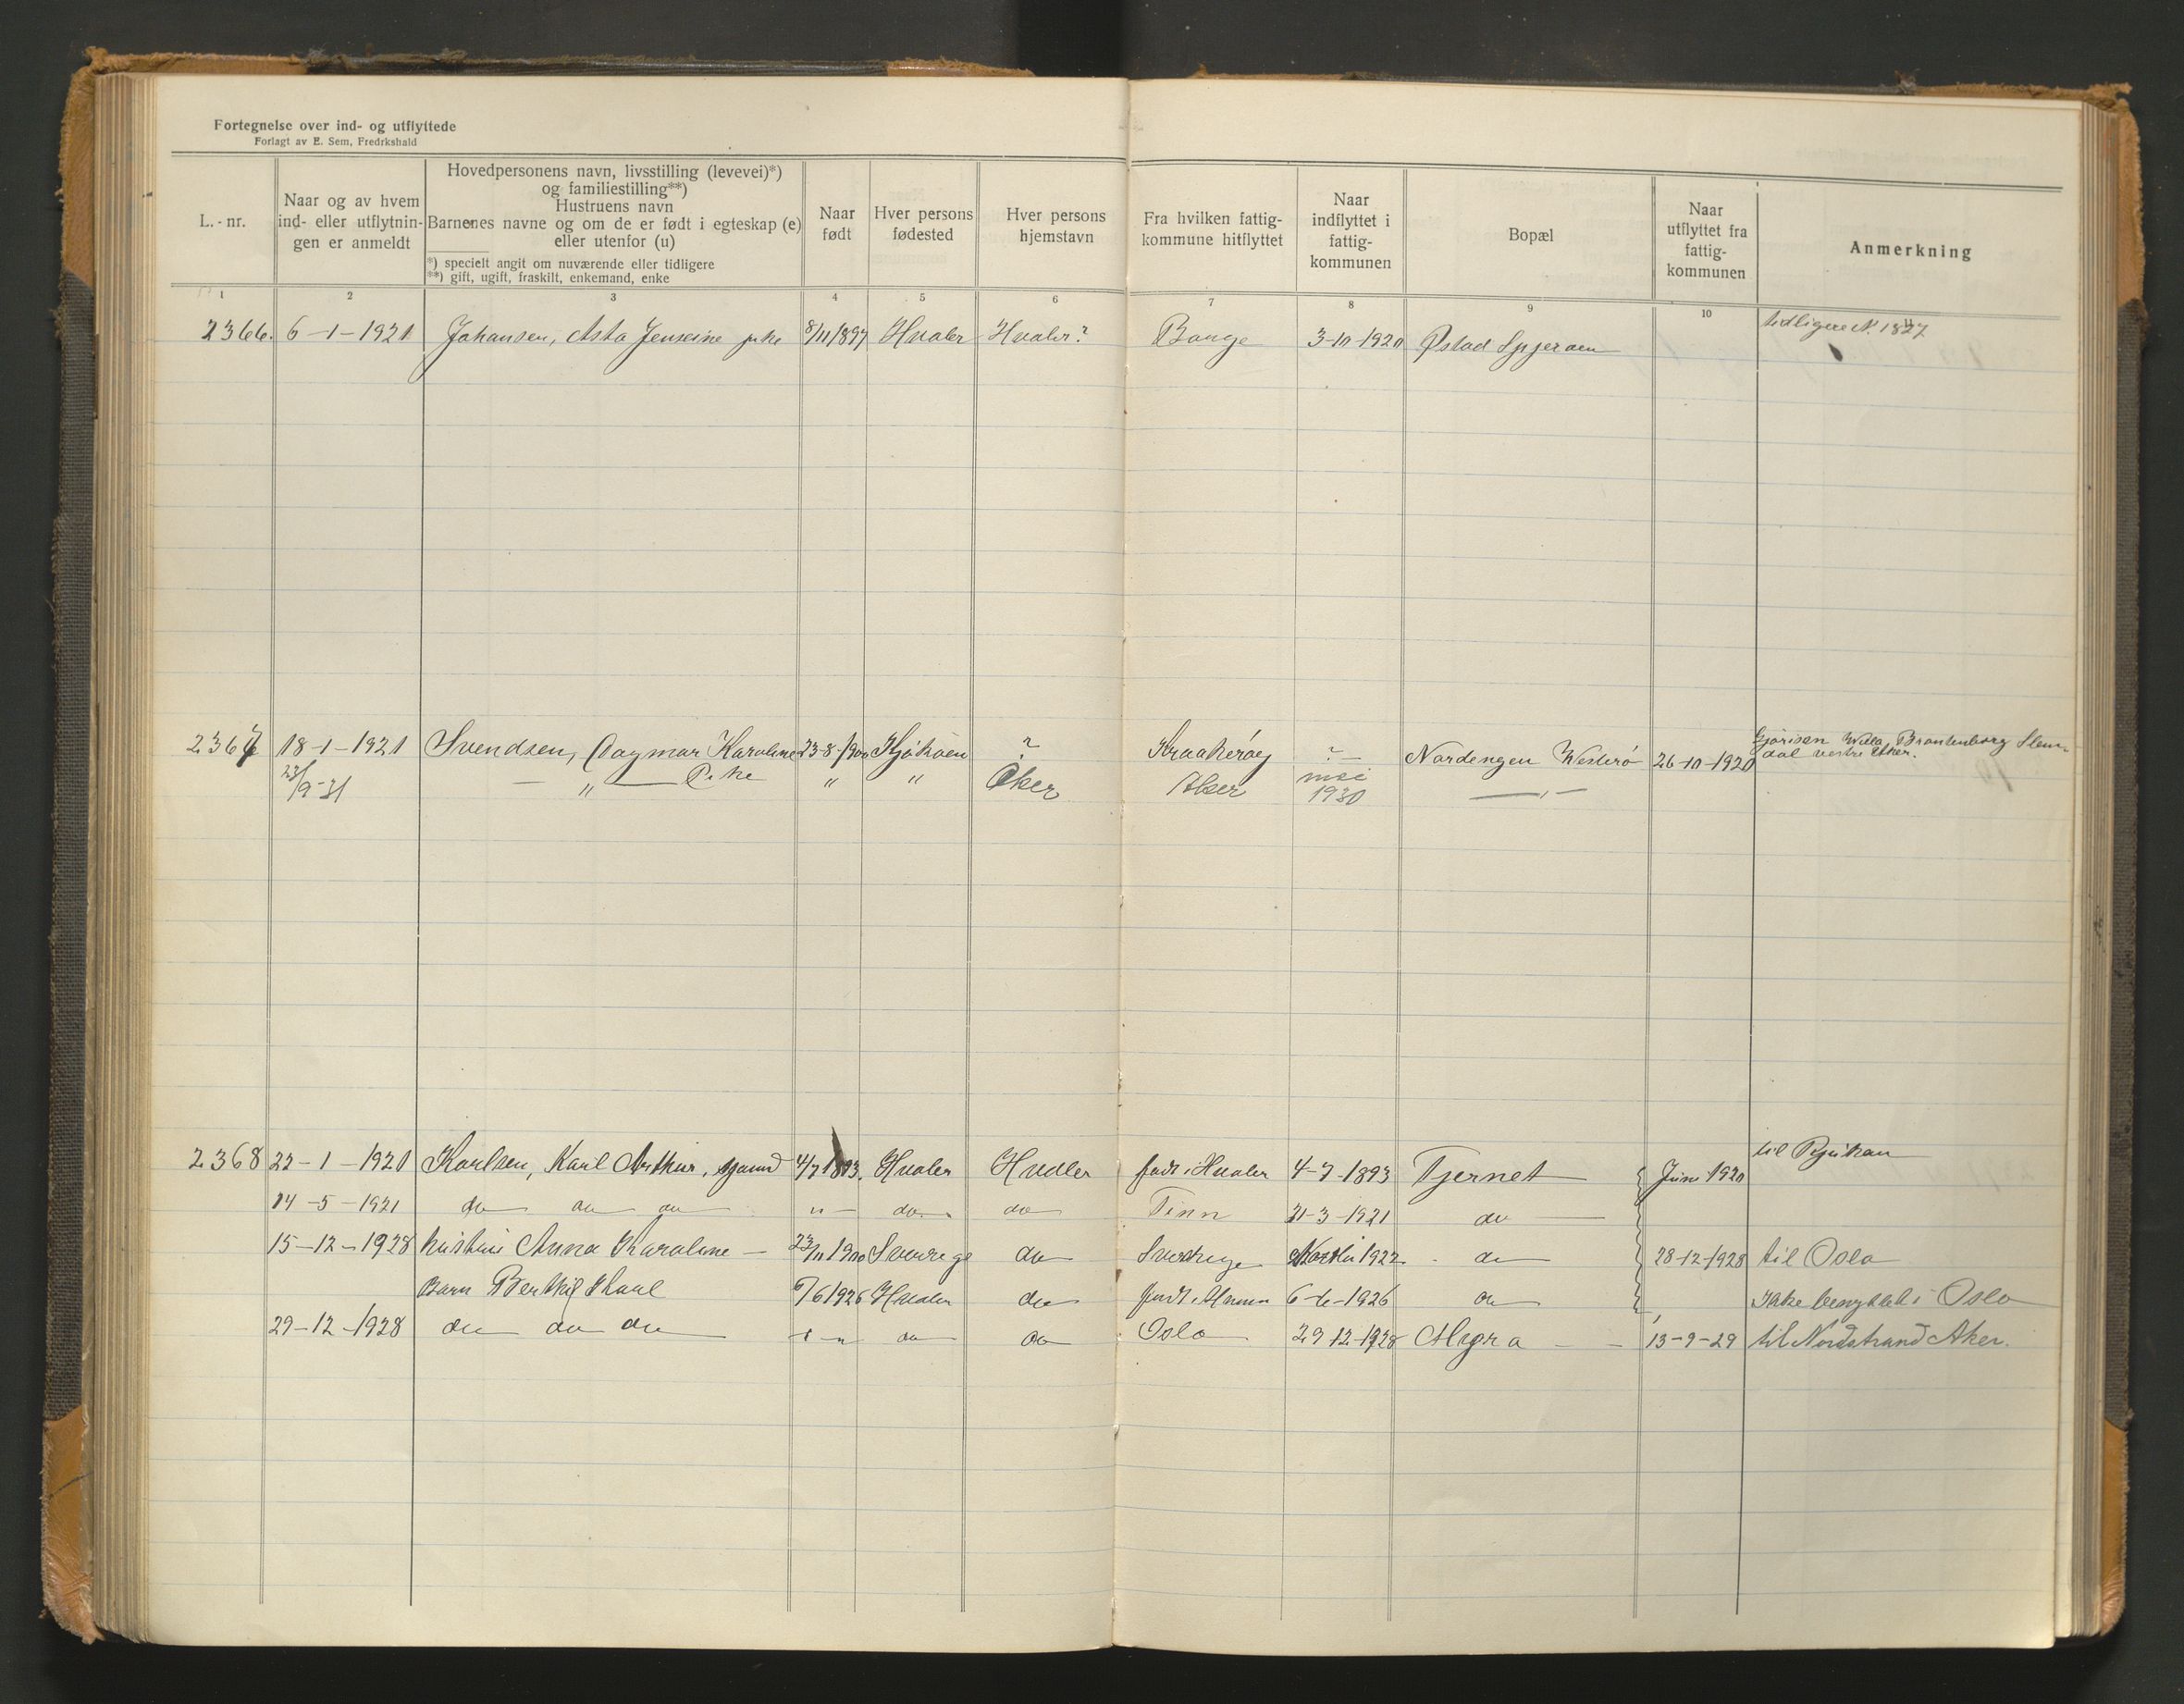 Fortegnelse over ind- og utflyttede
Forlagt av E. Sem, Fredrkshald
L. - nr.
Naar og av hvem ind- eller utflytnin- gen er anmeldt
Hovedpersonens navn, livsstilling (levevei)*)
og familiestilling**)
Hustruens navn
Barnenes navne og om de er født i egteskap (e)
eller utenfor (u)
*) specielt angit om nuværende eller tidligere
**) gift, ugift, fraskilt, enkemand, enke
Naar født
Hver persons fødested
Hver persons hjemstavn
Fra hvilken fattig- kommune hitflyttet
Naar indflyttet i fattig- kommunen
Bopæl
Naar utflyttet fra fattig- kommunen
Anmerkning
1 2 3 4 5 6 7 8 9 10
2366. 6-1-1921 Johansen, Asta Jensine pike 8/11 1897 Hvaler Hvaler? Bauge 3-10-1920 Østad Spjeraen tidligere N. 1827
2367 18-1-1921 Svendsen, Dagmar Karoline 23-8-1900 Kjøkøen ? Kraakerøy ? Nordengen Vesterø 26-10-1920 Villa Brantenborg Slem-
dal vestre Aker.
23/9-31 — " — Pike " " Aker Aker mai 1930 — " —
2368 22-1-1921 Karlsen, Karl Arthur, sjømd 4/7 1893. Hvaler Hvaler født i Hvaler 4-7-1893 Tjernet Juni 1920 til Rjukan
14-5-1921 do do do " do do Tinn 21-3-1921 do
15-12-1928 hustru Anna Karoline — 23/11 1900 Sverige do Sverige 1922 do 28-12-1928 til Oslo
Barn Berthil 6/6 1926 Hvaler do født i 6-6-1926 do Ikke benyttet i Oslo
29-12-1928 do do do — " do do Oslo 29 12-1928 13-9-29 til Nordstrand Aker.